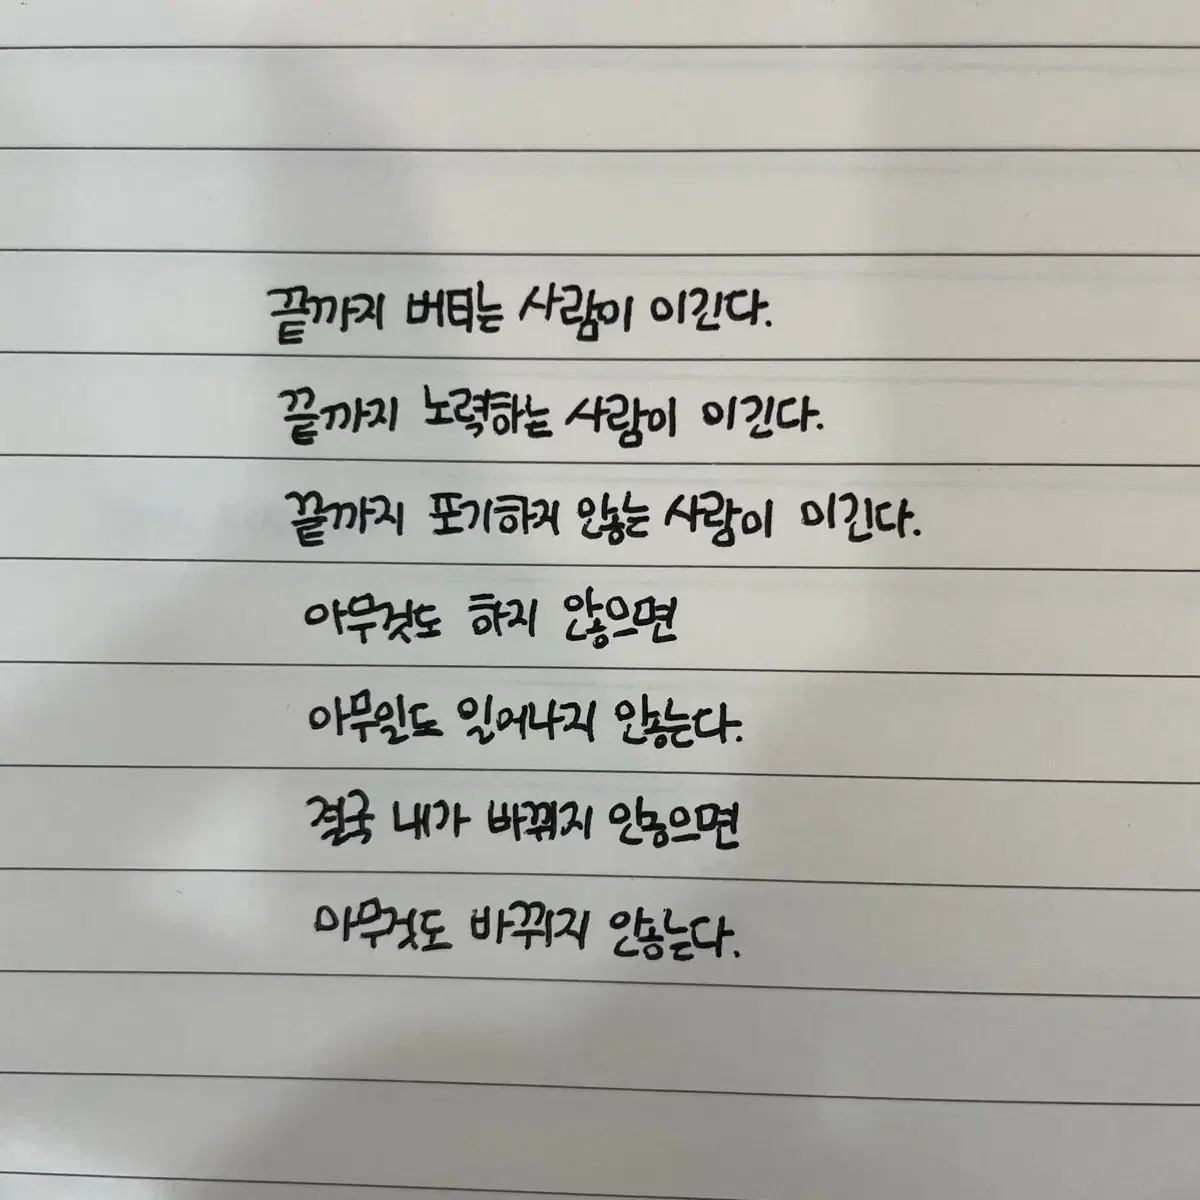 끝까지 버티는 사람이 이긴다.
끝까지 노력하는 사람이 이긴다.
끝까지 포기하지 않는 사람이 이긴다.
아무것도 하지 않으면
아무일도 일어나지 않는다.
결국 내가 바뀌지 않으면
아무것도 바뀌지 않는다.